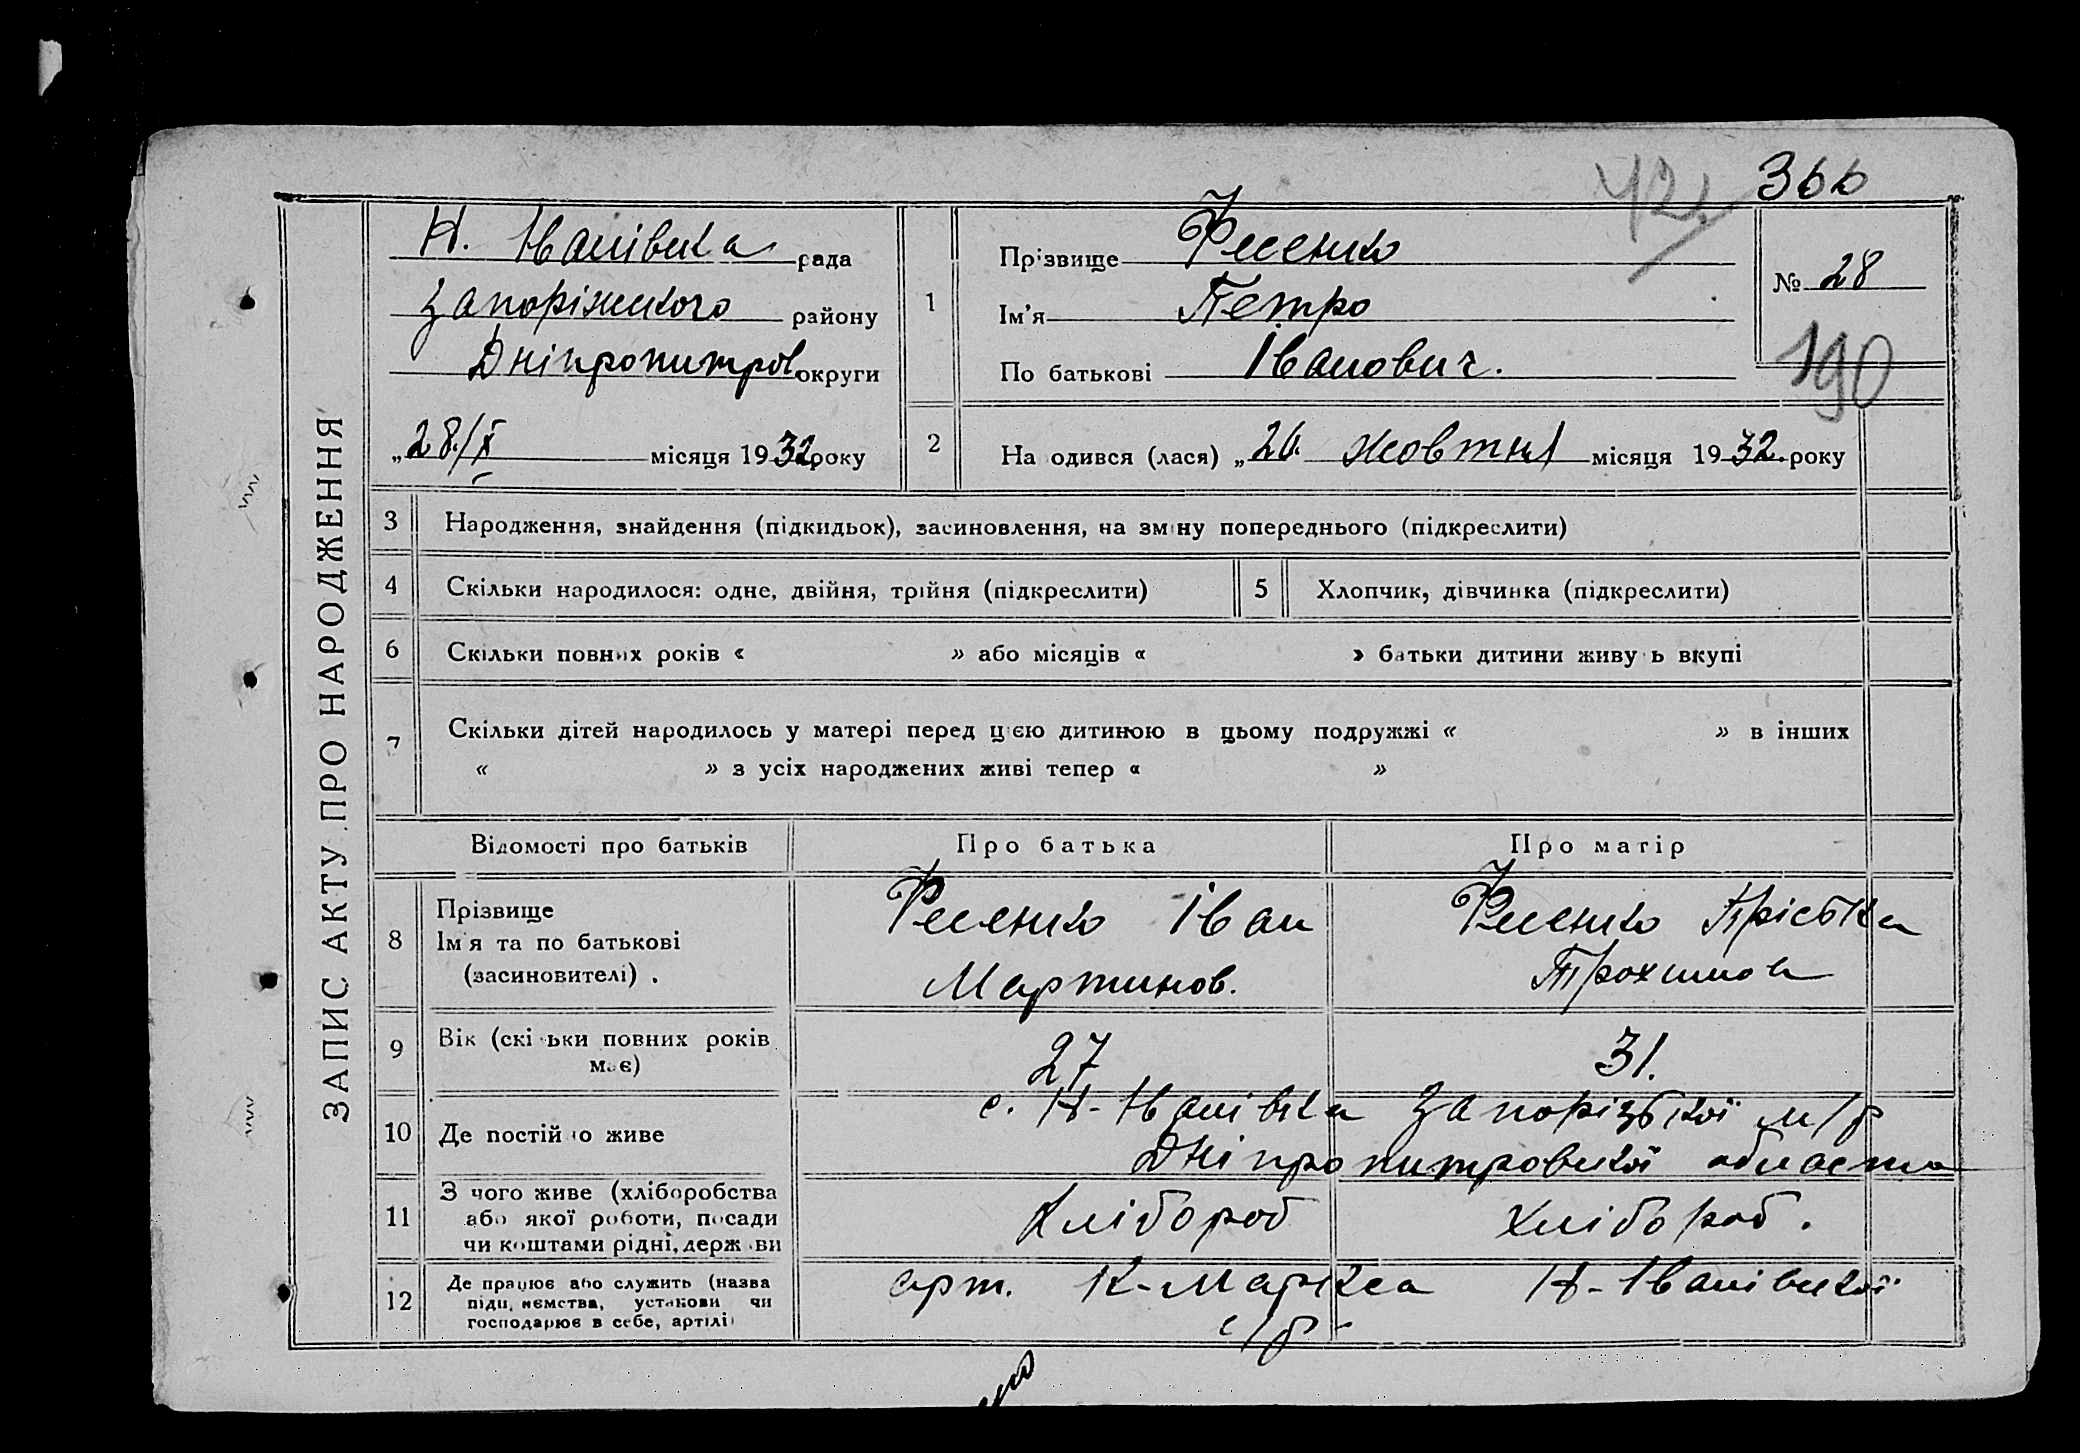 366
422
ЗАПИС АКТУ ПРО НАРОДЖЕННЯ
Н. Іванівська рада
Запоріжського району
Дніпропитров. округи
„28/X місяця 1932 року
1
Прізвище Фесенко
Ім'я Петро
По батькові Іванович.
№ 28
190
2
На одився (лася) „26. жовтня місяця 1932. року
3 Народження, знайдення (підкидьок), засиновлення, на зміну попереднього (підкреслити)
4 Скільки народилося: одне, двійня, трійня (підкреслити)
5 Хлопчик, дівчинка (підкреслити)
6 Скільки повних років « » або місяців « » батьки дитини живу ь вкупі
7 Скільки дітей народилось у матері перед цією дитиною в цьому подружжі « » в інших
« » з усіх народжених живі тепер « »
Відомості про батьків Про батька Про матір
8 Прізвище
Ім'я та по батькові
(засиновителі) .
Фесенко Іван
Мартинов.
Фесенко
Трохимова
9 Вік (скі ьки повних років
має)
27
31.
10 Де постій о живе
с. Н-Іванівка Запорізької м/р
Дніпропитровської области
11 З чого живе (хліборобства
або якої роботи, посади
чи коштами рідні, держ ви
Хлібороб
хлібороб.
12 Де працює або служить (назва
підп иємства, установи чи
господарює в себе, артілі
арт. К-Маркса Н-Іванівської
с/р